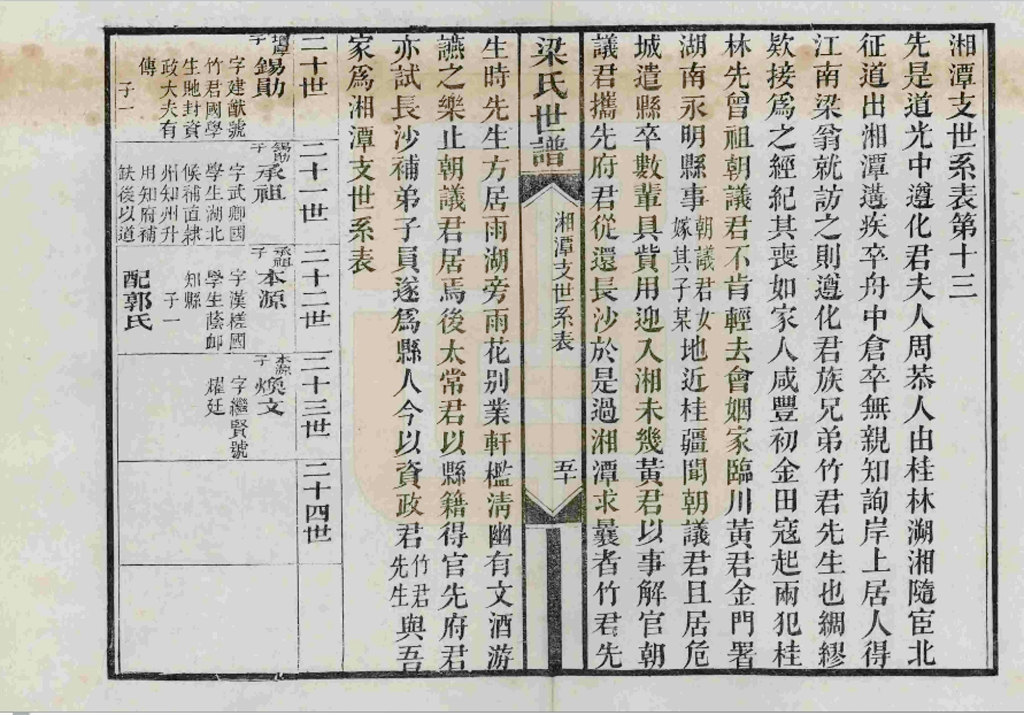 湘潭支世系表第十三
先是道光中遵化君夫人周恭人由桂林溯湘隨宦北
征道出湘潭遘疾卒舟中倉卒無親知詢岸上居人得
江南梁翁就訪之則遵化君族兄弟竹君先生也綢繆
欵接爲之經紀其喪如家人咸豐初金田寇起兩犯桂
林先曾祖朝議君不肯輕去會姻家臨川黃君金門署
湖南永明縣事朝議君女嫁其子某地近桂疆聞朝議君且居危
城遣縣卒數輩具貲用迎入湘未幾黃君以事解官朝
議君攜先府君從還長沙於是過湘潭求曩者竹君先
梁氏世譜
湘潭支世系表
五十
生時先生方居雨湖旁雨花别業軒檻淸幽有文酒游
讌之樂止朝議君居焉後太常君以縣籍得官先府君
亦試長沙補弟子員遂爲縣人今以資政君竹君先生與吾
家爲湘潭支世系表
二十世
二十一世
二十二世
二十三世
二十四世
子
錫勛
字建猷號
竹君國學
生貤封資
政大夫有
傳
子一
錫勛子
承祖
字武卿國
學生湖北
候補直隸
州知州升
用知府補
缺後以道
承祖子
本源
字漢槎國
學生蔭䘏
知縣
子一
配郭氏
本源子
煥文
字繼賢號
耀廷